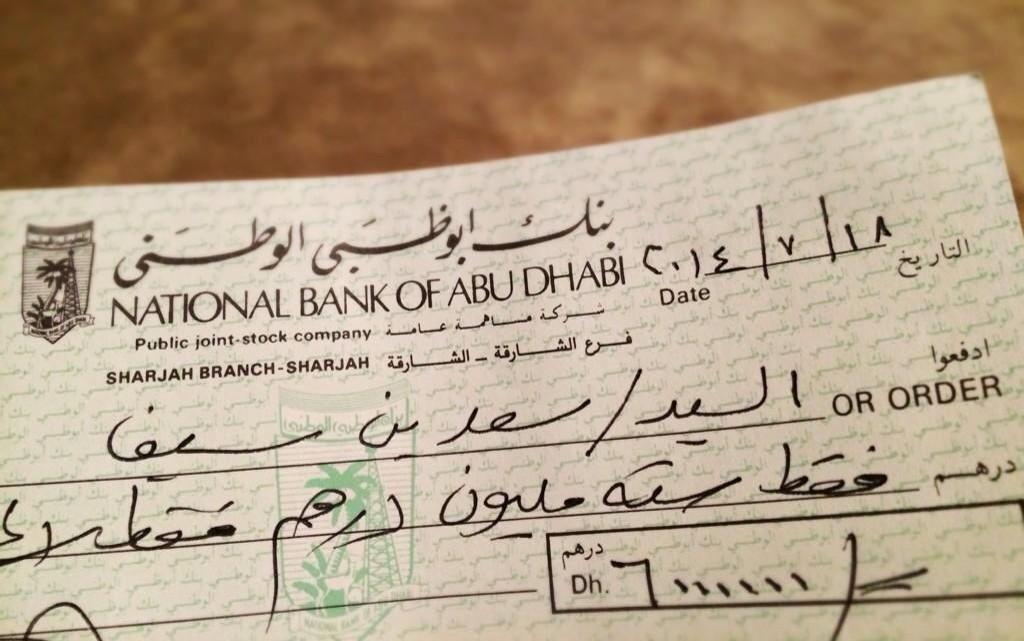 بنك ابوظبي الوطني
NATIONAL BANK OF ABU DHABI
٢٠١٤/٧/١٨
Date
التاريخ
Public joint-stock company شركة مساهمة عامة
SHARJAH BRANCH-SHARJAH فرع الشارقة - الشارقة
ادفعوا
OR ORDER
السيد/سعد بن سيف
درهم
فقط ستة مليون درهم فقط
درهم
Dh.
٦٠٠٠٠٠٠/=